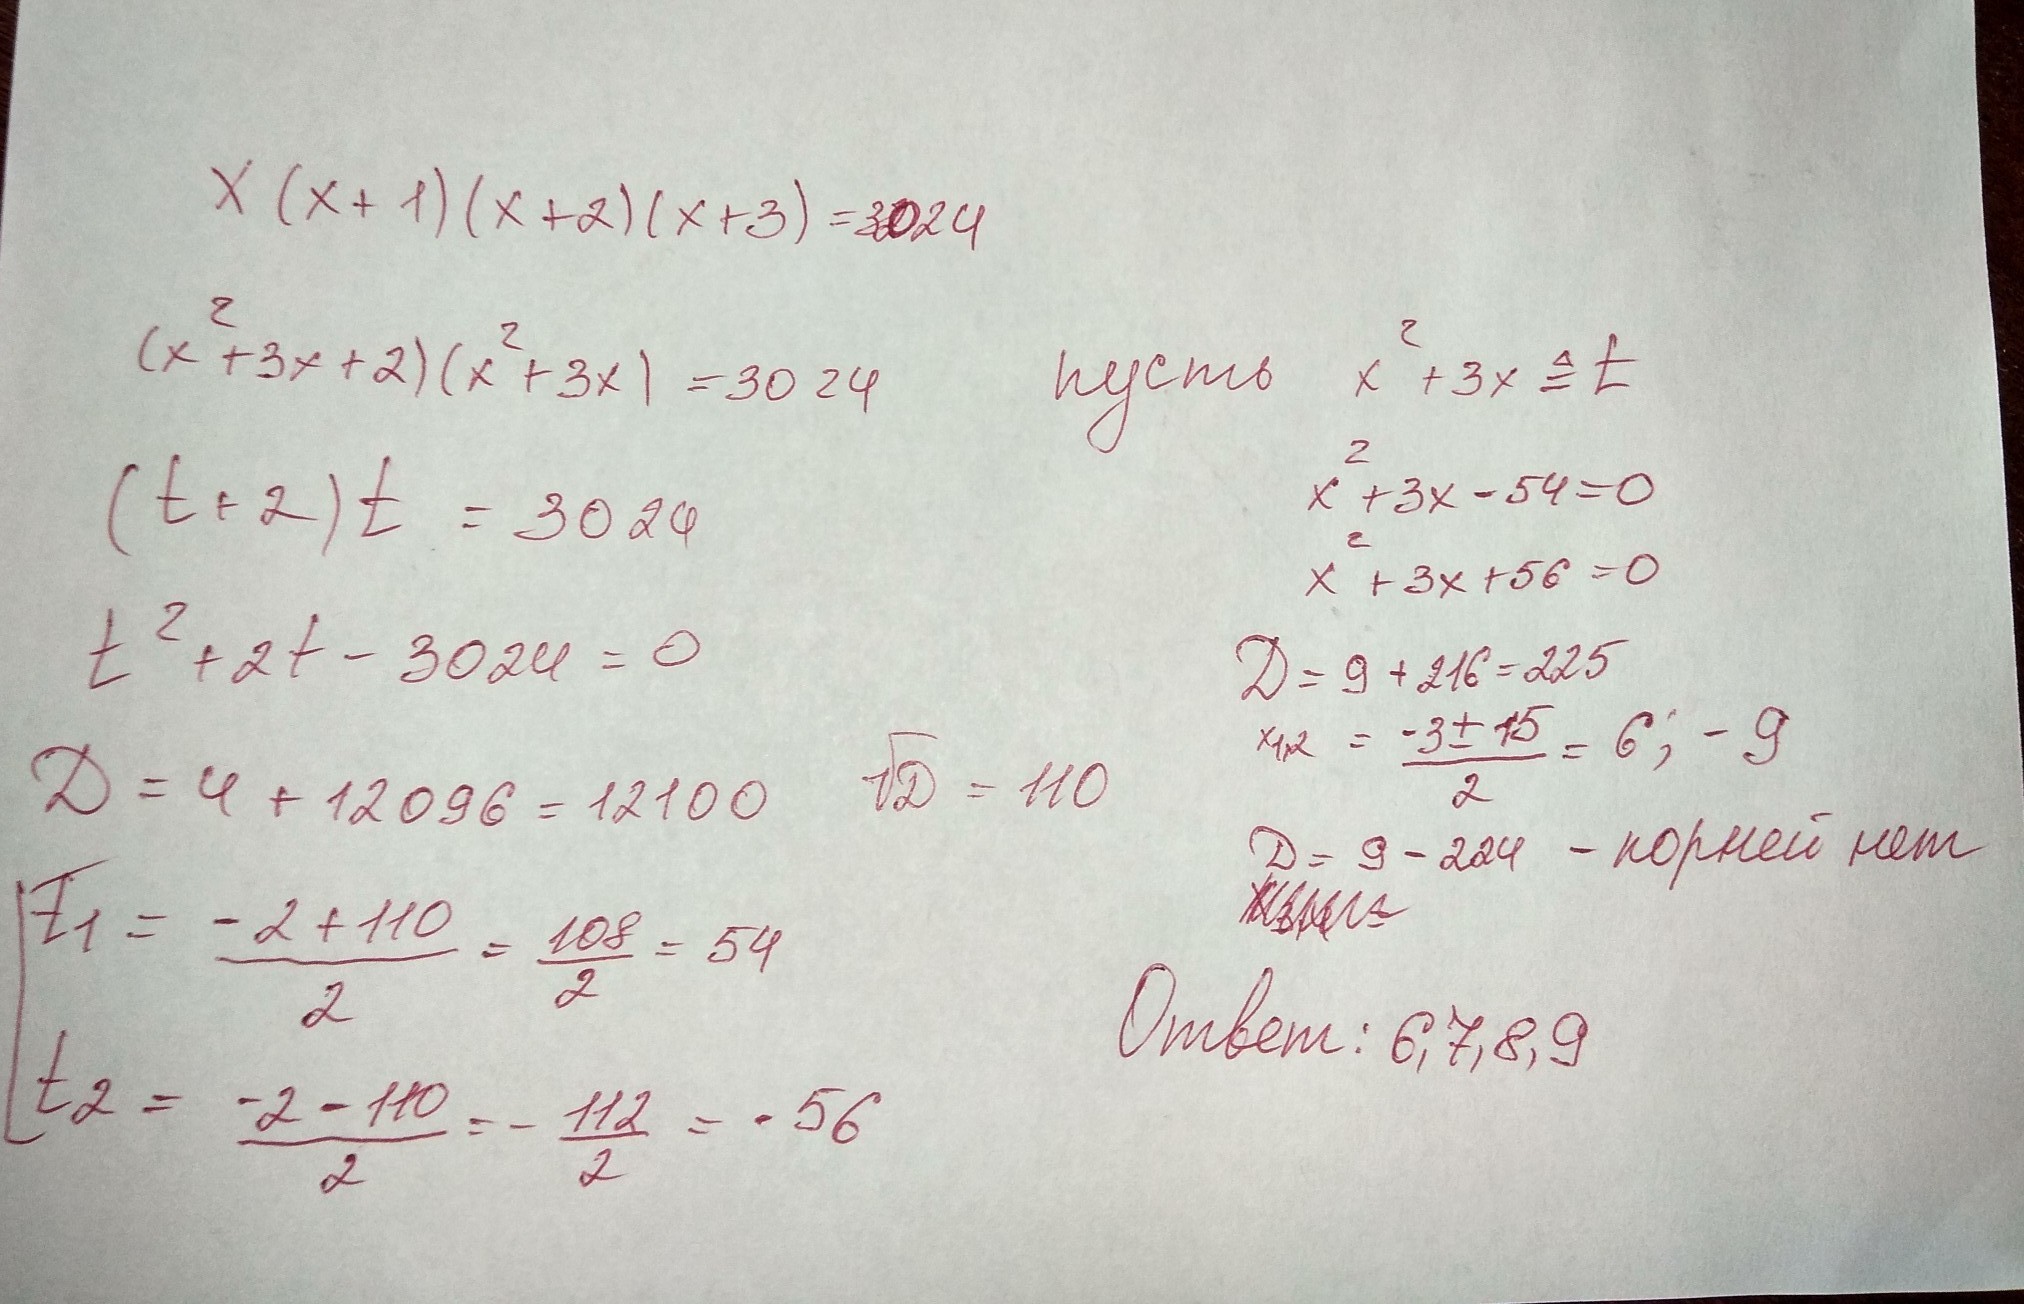 x(x+1)(x+2)(x+3)=3024
(x²+3x+2)(x²+3x)=3024
(t+2)t = 3024
t²+2t-3024=0
D=4+12096=12100 √D=110
t1 = (-2+110)/2 = 108/2 = 54
t2 = (-2-110)/2 = -112/2 = -56
пусть x²+3x ≜ t
x²+3x-54=0
x²+3x+56=0
D=9+216=225
x1,2 = (-3±15)/2 = 6; -9
D=9-224 - корней нет
Ответ: 6,7,8,9